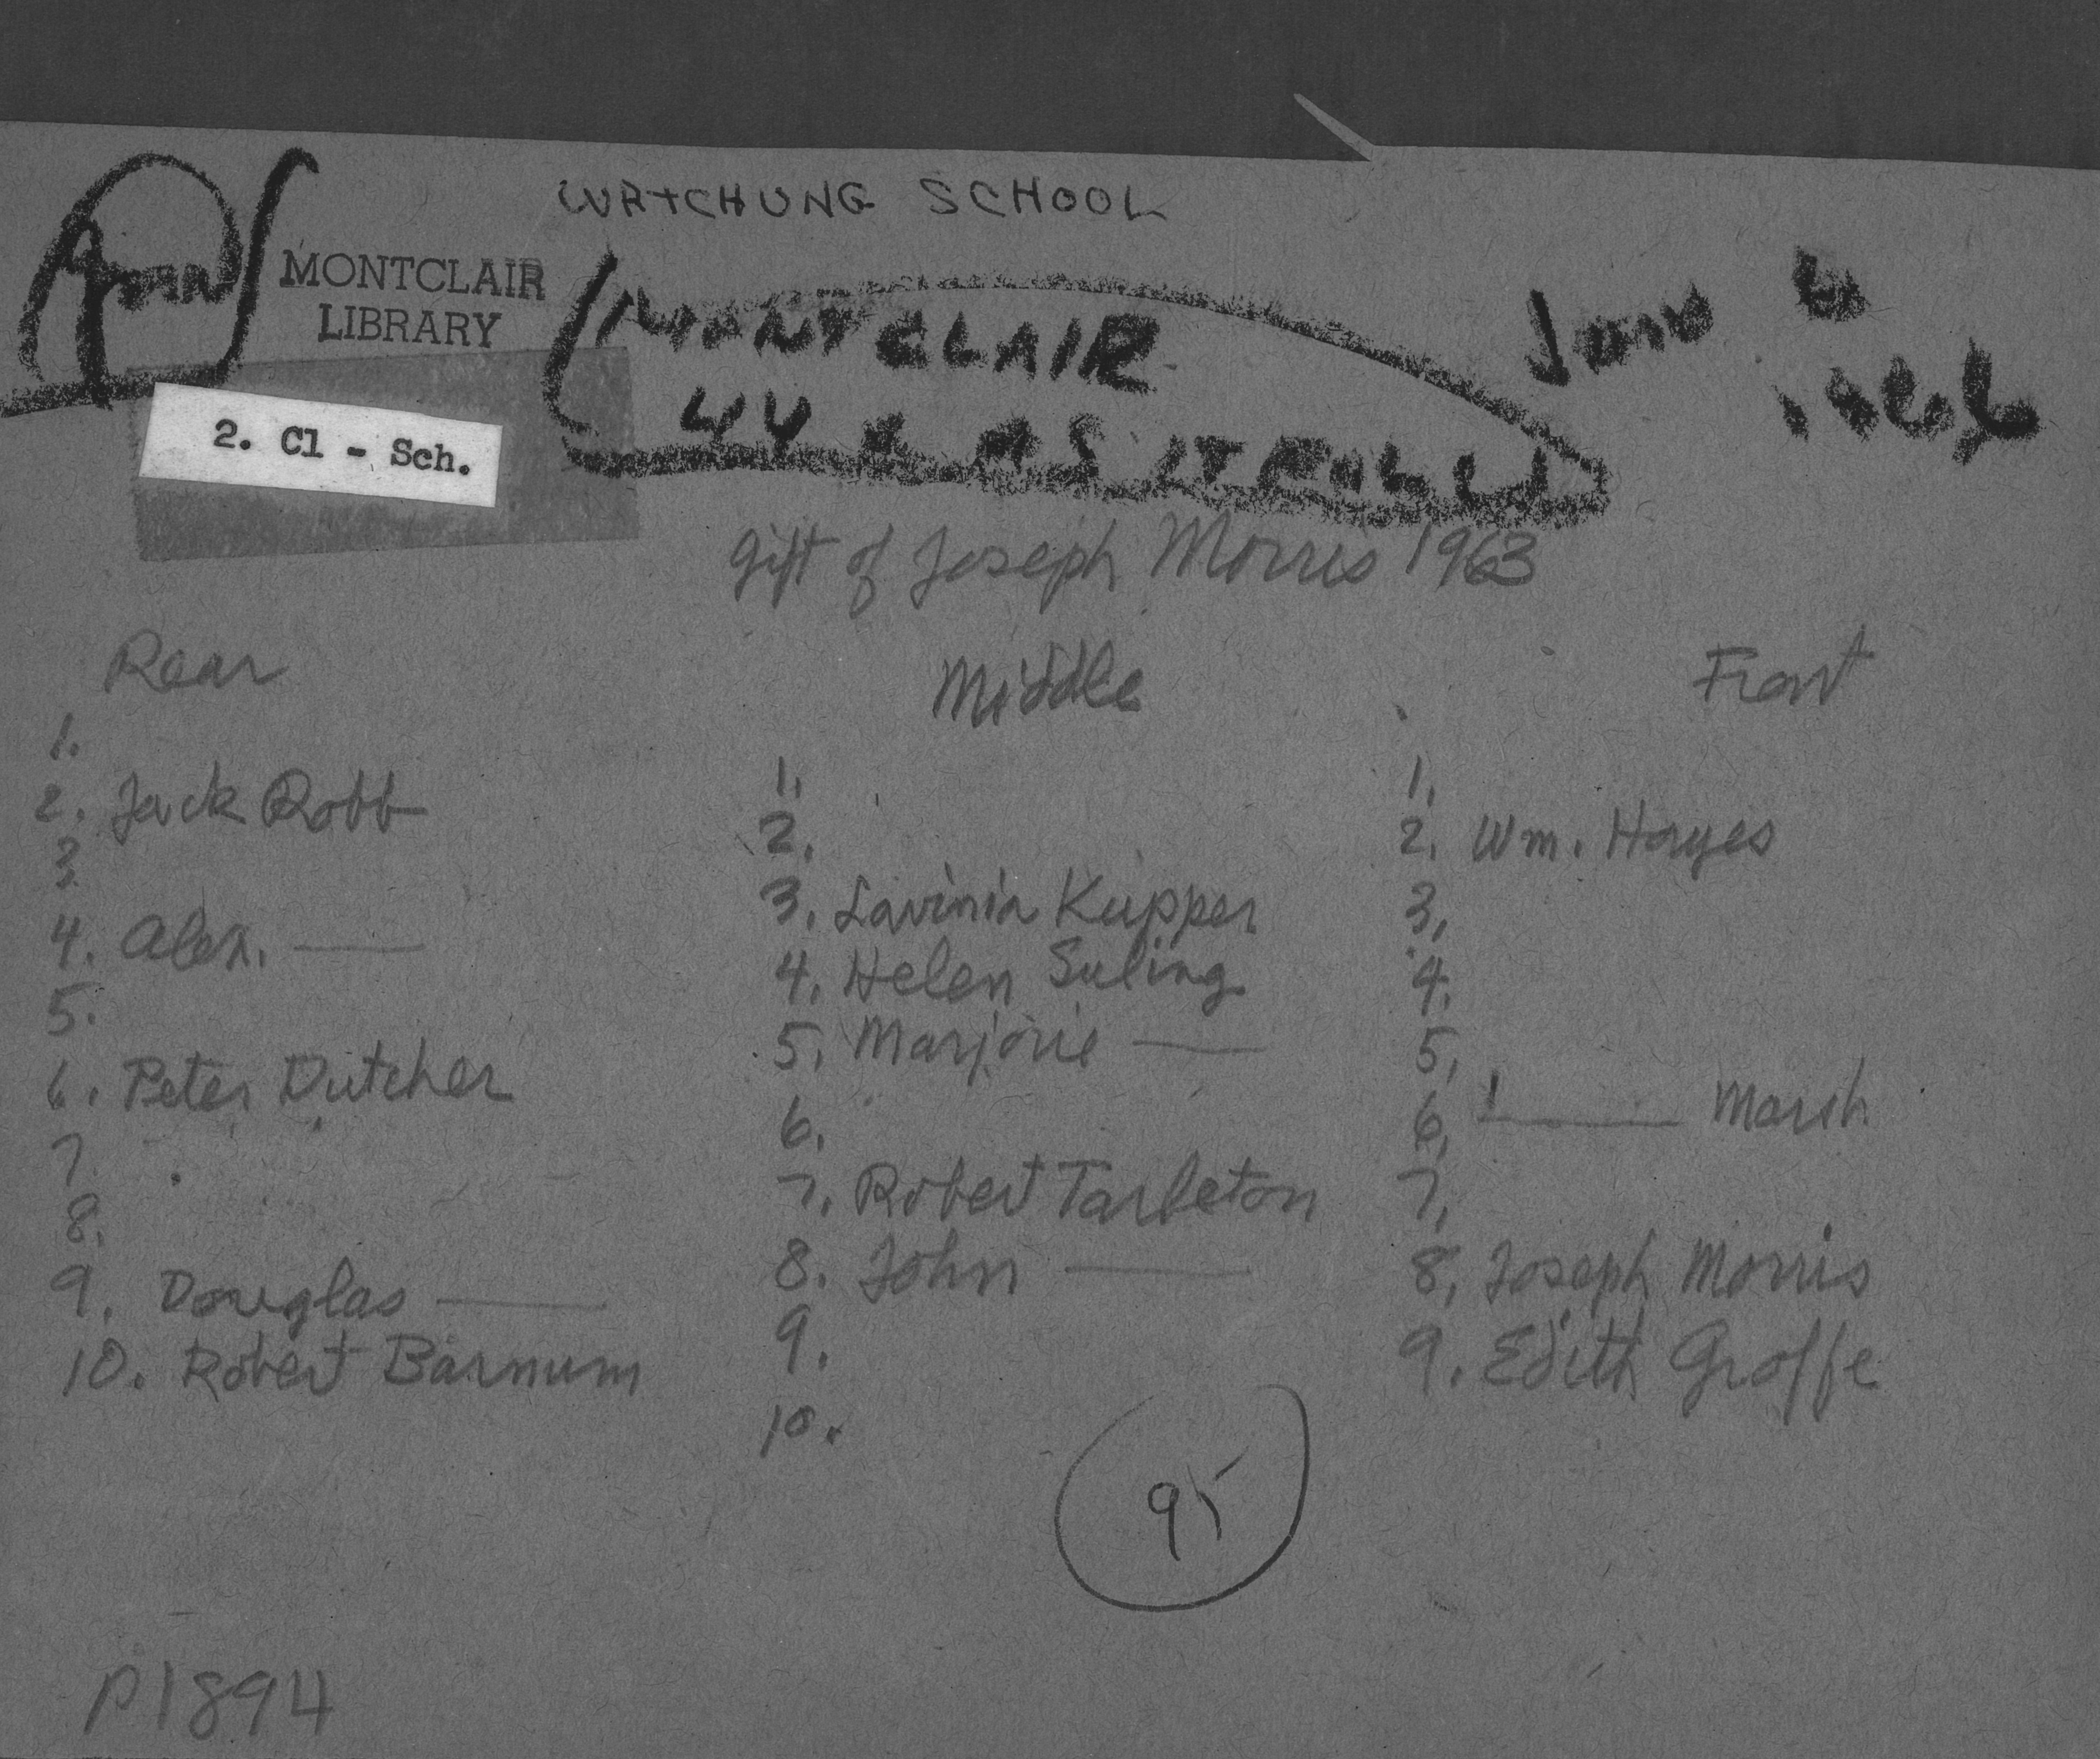 WATCHUNG SCHOOL
MONTCLAIR
LIBRARY
MONTCLAIR
2. Cl - Sch.
gift of Joseph Morris 1963
Rear
1.
2. Jack Robb
3.
4. Alex. ——
5.
6. Peter Dutcher
7.
8.
9. Douglas ——
10. Robert Barnum
Middle
1.
2.
3. Lavinia Kupper
4. Helen Suling
5. Marjorie ——
6.
7. Robert Tarleton
8. John ——
9.
10.
Front
1.
2. Wm. Hayes
3.
4.
5.
6. —— Marsh
7.
8. Joseph Morris
9. Edith Groffe
95
P1894